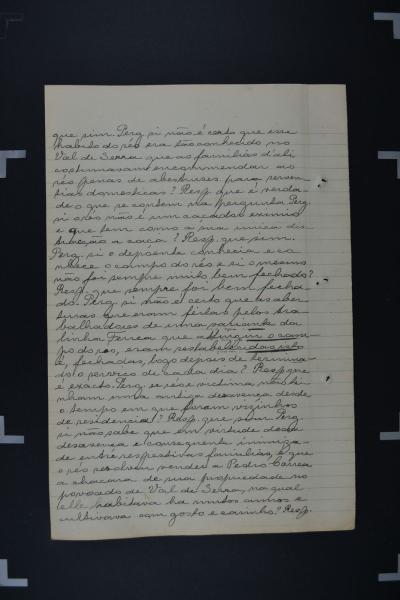 que sim. Perg. si não é certo que esse
habito do réo era tão conhecido no
Val de Serra que as familias d'ali
costumavam encommendar ao
réo penas de abestruses, para
ticos domesticos? Resp. que é verda-
de o que se contem na pergunta. Perg.
si o réo não é um caçador eximio
e que tem como a sua unica dis-
tracção a caça? Resp. que sim.
Perg. si o depoente conhecia e co-
nhece o campo do réo e si o mesmo
não foi sempre muito bem fechado?
Resp. que sempre foi bem fecha-
do. Perg. si não é certo que as aber-
turas que eram feitas pelos tra-
balhadores de uma variante da
linha Ferrea que attingiu o cam-
po do réo, eram restabelecidas isto
é, fechadas, logo depois de termina-
do o serviço de cada dia? Resp. que
é exacto. Perg. se réo e victima não ti-
nham uma antiga desavença desde
o tempo em que foram vizinhos
de residencia? Resp. que sim. Perg.
si não sabe que em virtude dessa
desavença e consequente inimiza-
de entre respectivas familias, é que
o réo resolveu vender a Pedro Corrêa
a chacara de sua propriedade no
povoado de Val de Serra, na qual
elle habitava ha muitos annos e
cultivava com gosto e carinho? Resp.